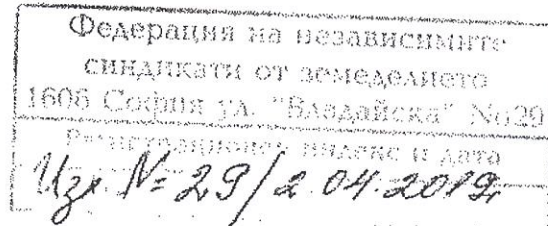 Федерация на независимите
синдикати от земеделието
1606 София ул. "Владайска" №29
Регистрационен индекс и дата
Изх. № 29/2.04.2019г.